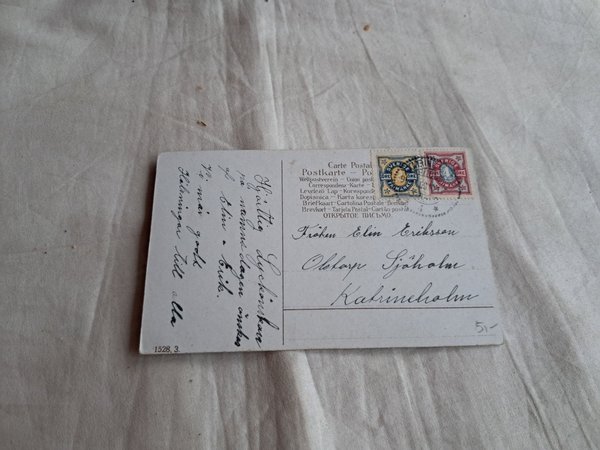 Carte Postale
Postkarte - Po
Weltpostverein - Union postale
Correspondenz-Karte - L
Levelező-Lap - Korespond
Dopisnica - Karta korespo
Briefkaart - Cartolina Postale
Brevkort - Tarjeta Postal - Cartão postal
ОТКРЫТОЕ ПИСЬМО.
SVERIGE
SVERIGE
Fröken Elin Eriksson
Olstorp Sjöholm
Katrineholm
Hjärtlig Lyckönskan
på namnsdagen önskas
af Elin o Erik.
vi mår godt
Hälsningar till alla
1528, 3.
5,-